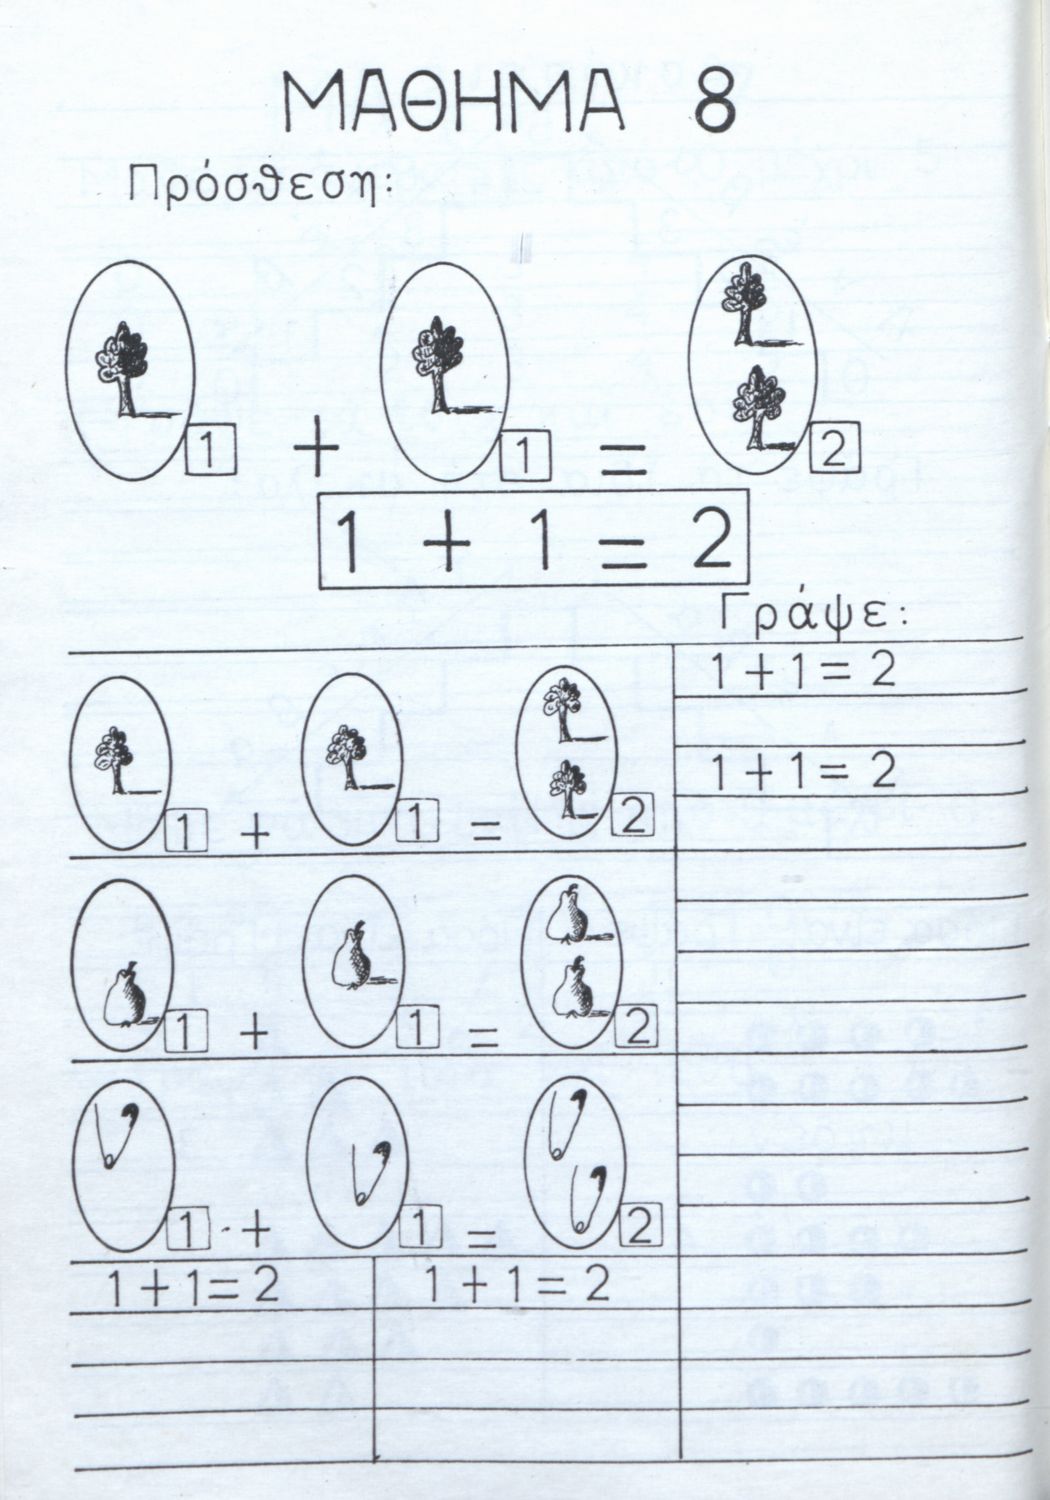 ΜΑΘΗΜΑ 8
Πρόσθεση:
1 + 1 = 2
1 + 1 = 2
Γράψε:
1 + 1 = 2
1 + 1 = 2
1 + 1 = 2
1 + 1 = 2
1 + 1 = 2
1 + 1 = 2 1 + 1 = 2